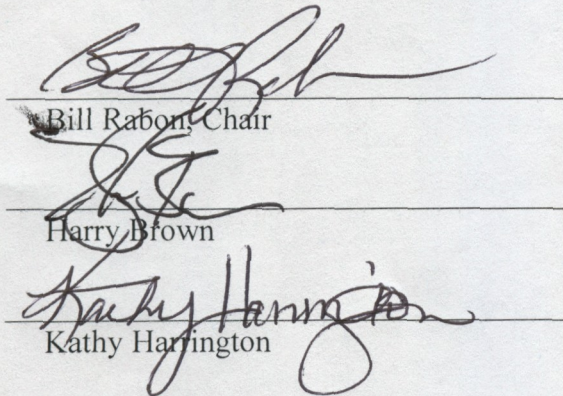 Bill Rabon, Chair
Harry Brown
Kathy Harrington
Kathy Harrington